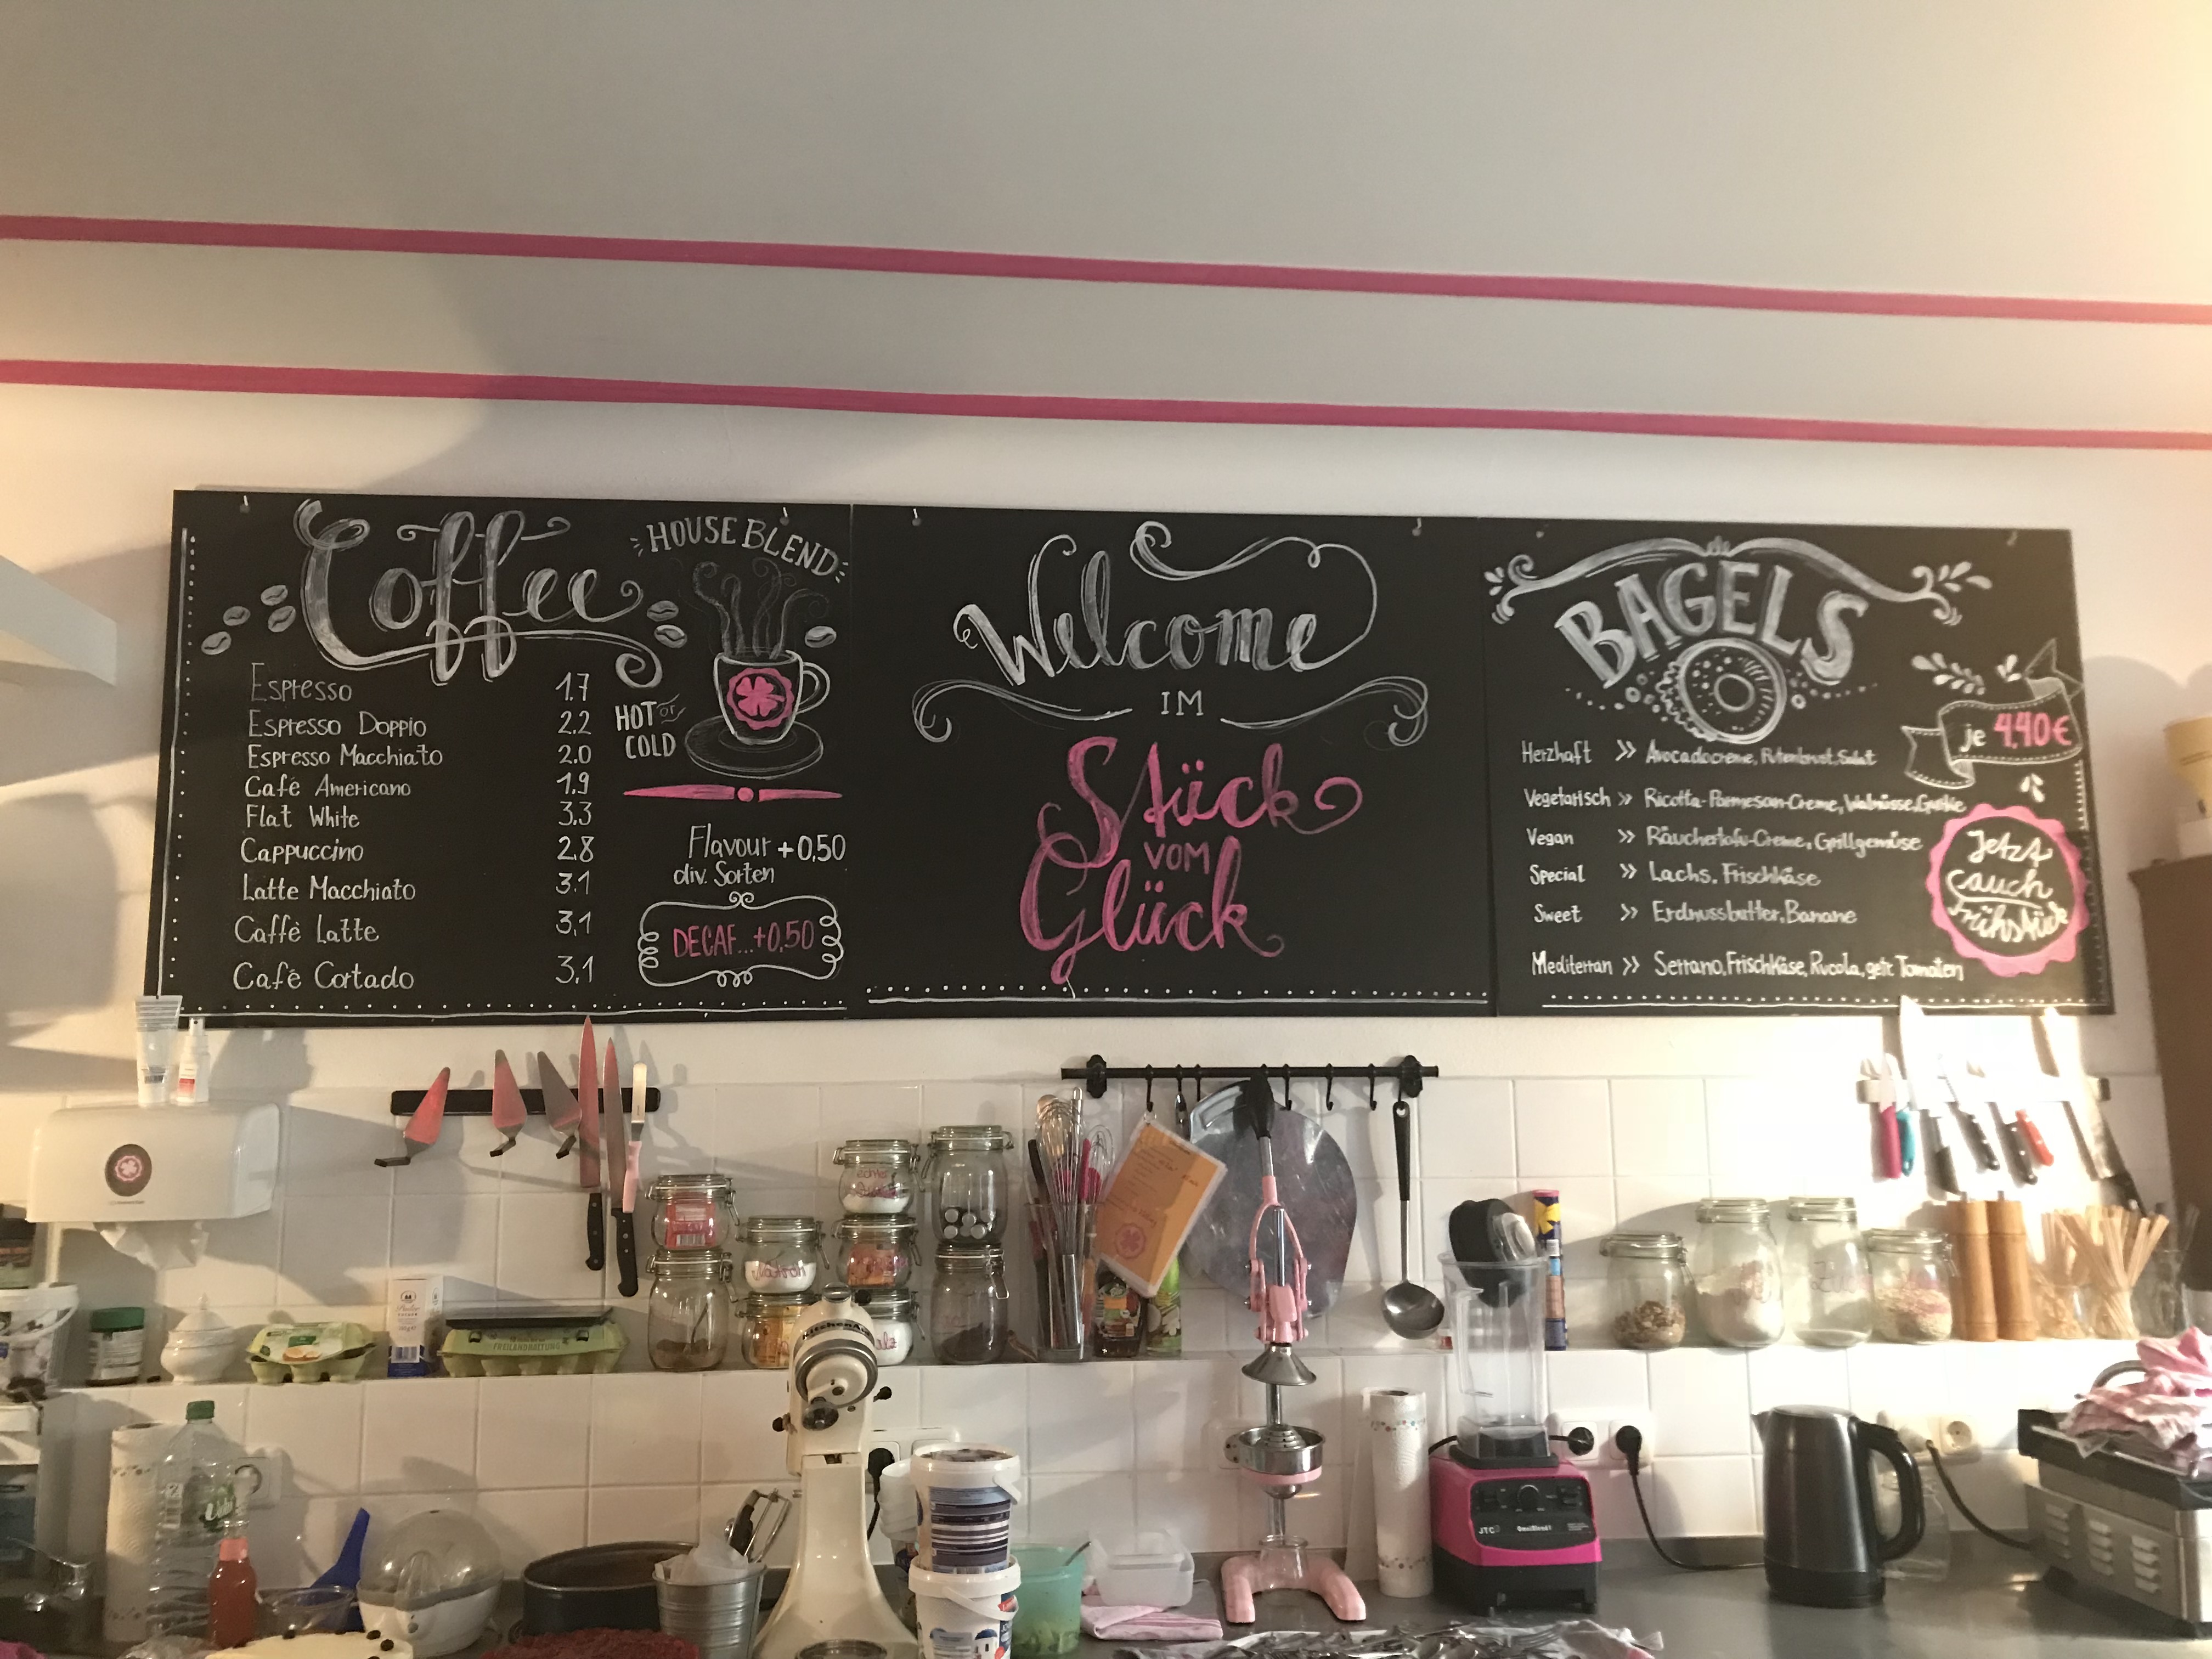 Coffee
HOUSE BLEND
Espresso 1.7
Espresso Doppio 2.2
Espresso Macchiato 2.0
Café Americano 1.9
Flat White 3.3
Cappuccino 2.8
Latte Macchiato 3.1
Caffè Latte 3,1
Café Cortado 3,1
HOT or
COLD
Flavour +0,50
div. Sorten
DECAF...+0,50
Welcome
IM
Stück
VOM
Glück
BAGELS
je 4,40€
Herzhaft >> Avocadocreme, Putenbrust, Salat
Vegetarisch >> Ricotta-Parmesan-Creme, Walnüsse,
Vegan >> Räuchertofu-Creme, Grillgemüse
Special >> Lachs, Frischkäse
Sweet >> Erdnussbutter, Banane
Mediterran >> Serrano, Frischkäse, Rucola, getr. Tomaten
Jetzt
auch
Frühstück
KitchenAid
FREILANDHALTUNG
JTC
OmniBlend I